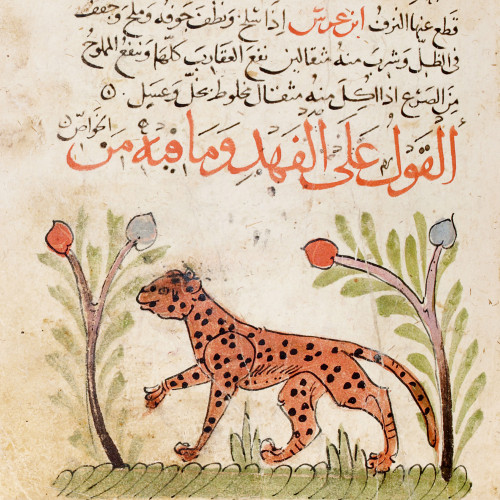 قطع عنها النزف ابن عرس اذا سلخ ونظف جوفه وملح وجفف
فى الظل وشرب منه مثقالين نفع العقارب كلها وتنفع المملوح
من الصرع اذا اكل منه مثقال مخلوط بخل وعسل
القول على الفهد وما فيه من الخواص